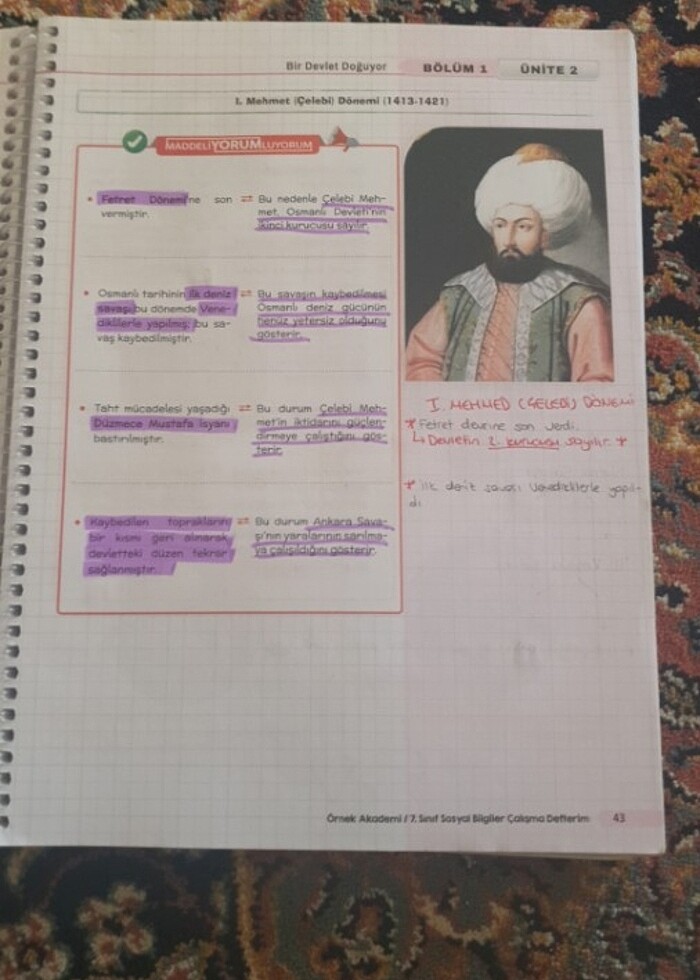 Bir Devlet Doğuyor
BÖLÜM 1
ÜNİTE 2
I. Mehmet (Çelebi) Dönemi (1413-1421)
MADDELİYORUMLUYORUM
• Fetret Dönemi'ne son
vermiştir.
⇄ Bu nedenle Çelebi Meh-
met, Osmanlı Devleti'nin
ikinci kurucusu sayılır.
• Osmanlı tarihinin ilk deniz
savaşı bu dönemde Vene-
diklilerle yapılmış; bu sa-
vaş kaybedilmiştir.
⇄ Bu savaşın kaybedilmesi
Osmanlı deniz gücünün
henüz yetersiz olduğunu
gösterir.
• Taht mücadelesi yaşadığı
Düzmece Mustafa İsyanı
bastırılmıştır.
⇄ Bu durum Çelebi Meh-
met'in iktidarını güçlen-
dirmeye çalıştığını gös-
terir.
• Kaybedilen toprakların
bir kısmı geri alınarak
devletteki düzen tekrar
sağlanmıştır.
⇄ Bu durum Ankara Sava-
şı'nın yaralarının sarılma-
ya çalışıldığını gösterir.
I. MEHMED (ÇELEBİ) DÖNEMİ
* Fetret devrine son verdi.
↳ Devletin 2. kurucusu sayılır. *
* İlk deniz savaşı Venediklilerle yapıl-
dı
Örnek Akademi / 7. Sınıf Sosyal Bilgiler Çalışma Defterim
43